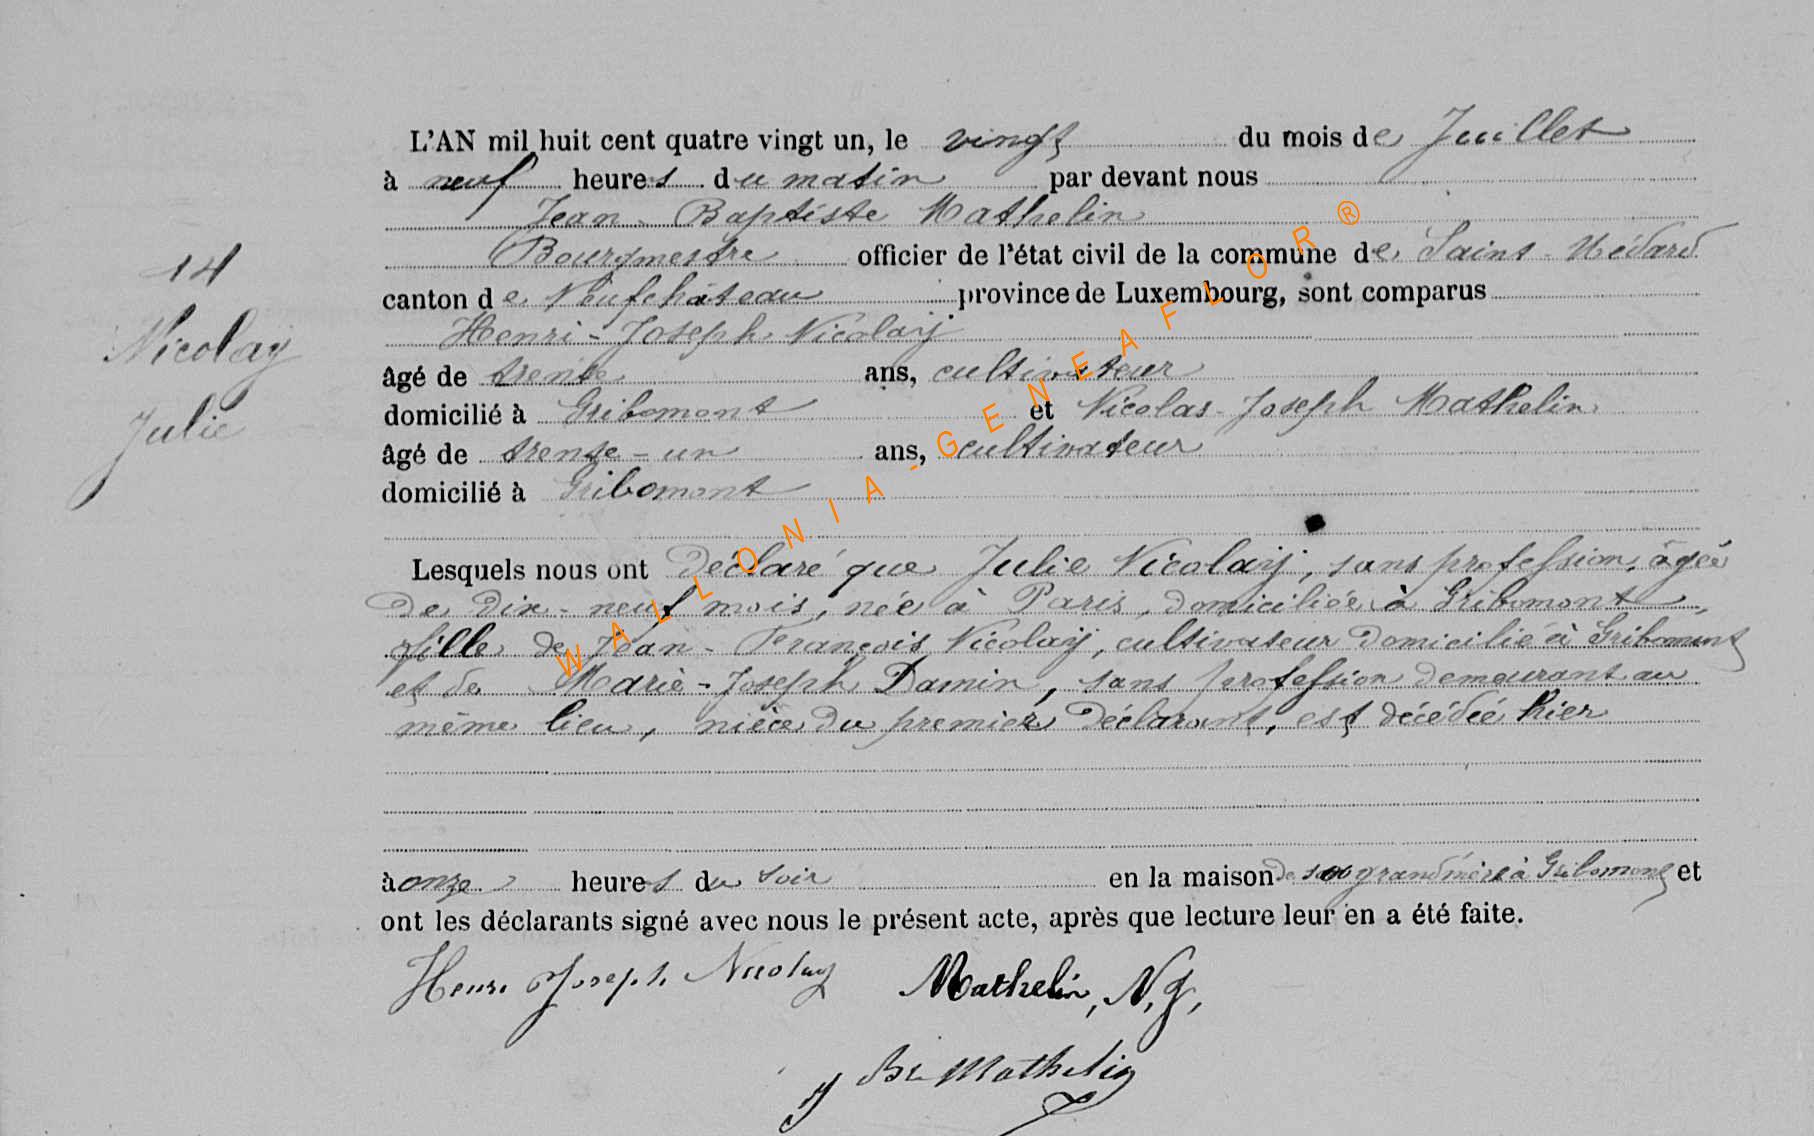 L'AN mil huit cent quatre vingt un, le vingt du mois de Juillet
à neuf heures du matin par devant nous
Jean-Baptiste Mathelin
Bourgmestre officier de l'état civil de la commune de Saint-Médard
canton de Neufchâteau province de Luxembourg, sont comparus
Henri-Joseph Nicolaÿ
14
Nicolay
Julie
âgé de trente ans, cultivateur
domicilié à Gribomont et Nicolas-Joseph Mathelin
âgé de trente-un ans, cultivateur
domicilié à Gribomont
Lesquels nous ont déclaré que Julie Nicolaÿ, sans profession, âgée
de dix-neuf mois, née à Paris, domiciliée à Gribomont,
fille de Jean-François Nicolaÿ, cultivateur domicilié à Gribomont
et de Marie-Joseph Damin, sans profession demeurant au
même lieu, nièce du premier déclarant, est décédée hier
à onze heures du soir en la maison de son grandmère à Gribomont et
ont les déclarants signé avec nous le présent acte, après que lecture leur en a été faite.
Henri Joseph Nicolay Mathelin, N. J.,
J Bte Mathelin
WALLONIA-GENEAFLOR®